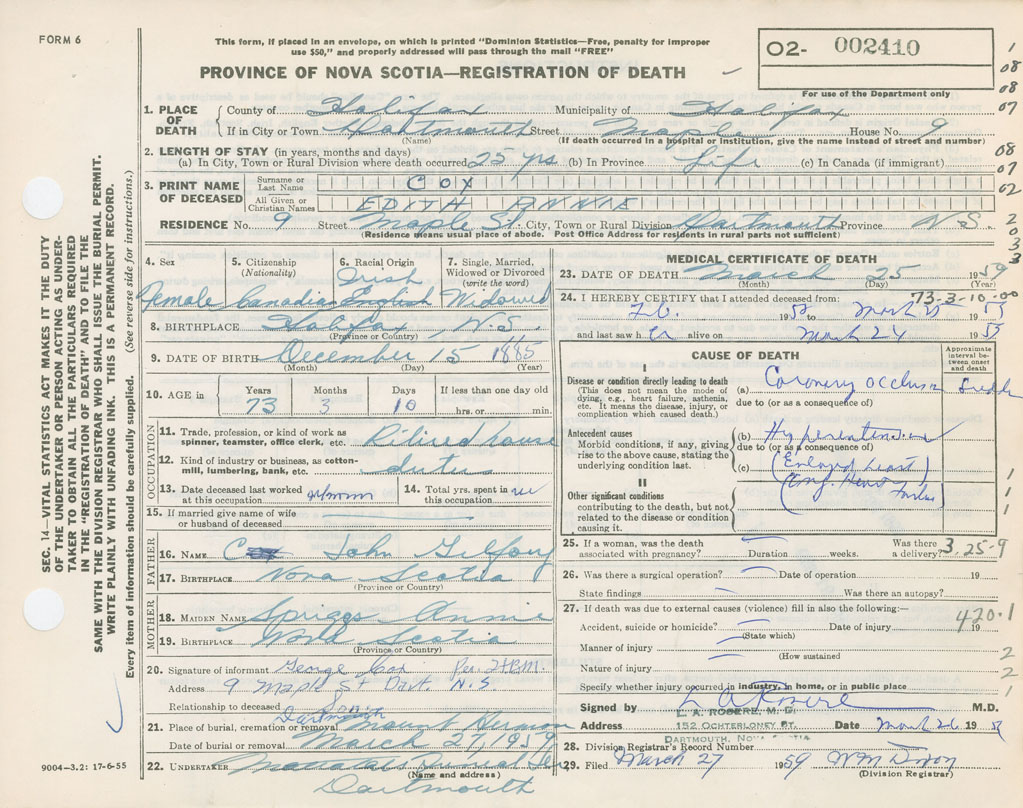 FORM 6
This form, if placed in an envelope, on which is printed "Dominion Statistics—Free, penalty for improper
use $50," and properly addressed will pass through the mail "FREE"
PROVINCE OF NOVA SCOTIA—REGISTRATION OF DEATH
02- 002410
For use of the Department only
1
08
08
07
08
07
02
2
0
3
3
1. PLACE OF DEATH
County of Halifax Municipality of Halifax
If in City or Town Dartmouth Street Maple House No. 9
(Name) (If death occurred in a hospital or institution, give the name instead of street and number)
2. LENGTH OF STAY (in years, months and days)
(a) In City, Town or Rural Division where death occurred 25 yrs (b) In Province Life (c) In Canada (if immigrant)
3. PRINT NAME OF DECEASED
Surname or Last Name COX
All Given or Christian Names EDITH ANNIE
RESIDENCE No. 9 Street Maple St. City, Town or Rural Division Dartmouth Province N.S.
(Residence means usual place of abode. Post Office Address for residents in rural parts not sufficient)
4. Sex Female
5. Citizenship (Nationality) Canadian
6. Racial Origin Irish English
7. Single, Married, Widowed or Divorced (write the word) Widowed
8. BIRTHPLACE Halifax, N.S.
(Province or Country)
9. DATE OF BIRTH December 15 1885
(Month) (Day) (Year)
10. AGE in Years 73 Months 3 Days 10 If less than one day old hrs. or min.
OCCUPATION
11. Trade, profession, or kind of work as spinner, teamster, office clerk, etc. Retired house
12. Kind of industry or business, as cotton-mill, lumbering, bank, etc. duties
13. Date deceased last worked at this occupation
14. Total yrs. spent in this occupation
15. If married give name of wife or husband of deceased
FATHER
16. NAME John
17. BIRTHPLACE Nova Scotia
(Province or Country)
MOTHER
18. MAIDEN NAME Spriggs Annie
19. BIRTHPLACE Nova Scotia
(Province or Country)
20. Signature of informant George Cox Per. H.E.M.
Address 9 Maple St Dart. N.S.
Relationship to deceased Son
21. Place of burial, cremation or removal Dartmouth Mount Hermon
Date of burial or removal March 27, 1959
22. UNDERTAKER
(Name and address)
Dartmouth
MEDICAL CERTIFICATE OF DEATH
23. DATE OF DEATH March 25 1959
(Month) (Day)
73-3-10-00
24. I HEREBY CERTIFY that I attended deceased from:
Feb. 19 to March 25 19
and last saw her alive on March 24 19
CAUSE OF DEATH
Approximate interval between onset and death
I
Disease or condition directly leading to death
(This does not mean the mode of dying, e.g., heart failure, asthenia, etc. It means the disease, injury, or complication which caused death.)
(a) Coronary occlusion
due to (or as a consequence of)
Antecedent causes
Morbid conditions, if any, giving rise to the above cause, stating the underlying condition last.
(b) Hypertension
due to (or as a consequence of)
(c) (Enlarged heart)
II
Other significant conditions contributing to the death, but not related to the disease or condition causing it.
(Cong. Heart Failure)
1
1
1
25. If a woman, was the death associated with pregnancy? Duration weeks. Was there a delivery?
3.25-9
26. Was there a surgical operation? Date of operation 19
State findings Was there an autopsy?
27. If death was due to external causes (violence) fill in also the following:—
Accident, suicide or homicide? Date of injury 19
(State which)
420.1
Manner of injury
(How sustained
Nature of injury
2
2
1
Specify whether injury occurred in industry, in home, or in public place
Signed by L A Rosere M.D.
L. A. ROSERE, M. D.
Address 152 OCHTERLONEY ST. Date March 26 19
DARTMOUTH, NOVA SCOTIA
28. Division Registrar's Record Number
29. Filed March 27 1959 Wm Dixon
(Division Registrar)
SEC. 14—VITAL STATISTICS ACT MAKES IT THE DUTY
OF THE UNDERTAKER OR PERSON ACTING AS UNDER-
TAKER TO OBTAIN ALL THE PARTICULARS REQUIRED
IN THE "REGISTRATION OF DEATH" AND TO FILE THE
SAME WITH THE DIVISION REGISTRAR WHO SHALL ISSUE THE BURIAL PERMIT.
WRITE PLAINLY WITH UNFADING INK. THIS IS A PERMANENT RECORD.
Every item of information should be carefully supplied. (See reverse side for instructions.)
9004-3.2: 17-6-55